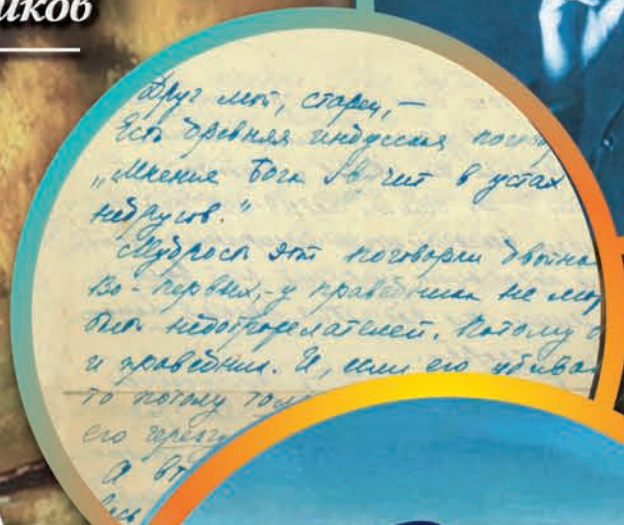 иков
Друг мой, старец, —
Есть древняя индусская пого
„Мнения Бога звучит в устах
недругов."
Мудрость этой поговорки двойна
Во-первых, – у праведника не мог
быть недоброжелателей. Потому
и праведник. И, если его убива
то потому
его
А вт